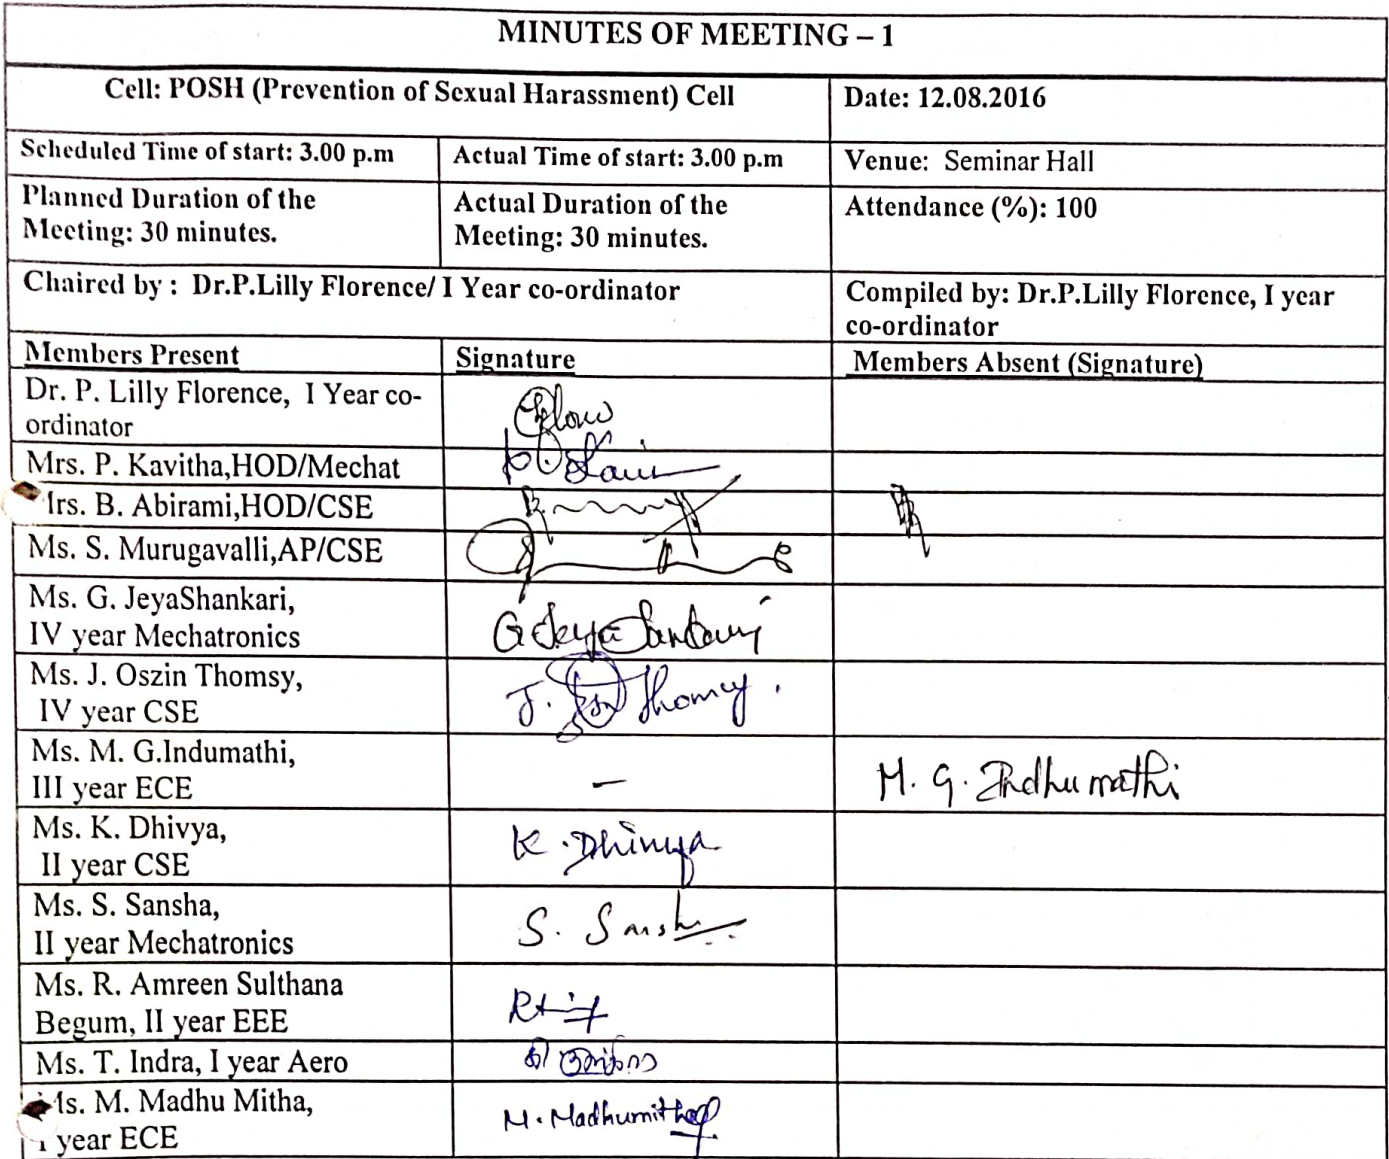 MINUTES OF MEETING – 1
Cell: POSH (Prevention of Sexual Harassment) Cell
Date: 12.08.2016
Scheduled Time of start: 3.00 p.m
Actual Time of start: 3.00 p.m
Venue: Seminar Hall
Planned Duration of the
Meeting: 30 minutes.
Actual Duration of the
Meeting: 30 minutes.
Attendance (%): 100
Chaired by : Dr.P.Lilly Florence/ I Year co-ordinator
Compiled by: Dr.P.Lilly Florence, I year
co-ordinator
Members Present
Signature
Members Absent (Signature)
Dr. P. Lilly Florence, I Year co-
ordinator
Mrs. P. Kavitha,HOD/Mechat
Mrs. B. Abirami,HOD/CSE
Ms. S. Murugavalli,AP/CSE
Ms. G. JeyaShankari,
IV year Mechatronics
Ms. J. Oszin Thomsy,
IV year CSE
Ms. M. G.Indumathi,
III year ECE
–
M. G. Indhumathi
Ms. K. Dhivya,
II year CSE
K. Dhivya
Ms. S. Sansha,
II year Mechatronics
S. Sansha
Ms. R. Amreen Sulthana
Begum, II year EEE
Ms. T. Indra, I year Aero
Ms. M. Madhu Mitha,
I year ECE
M. Madhumitha